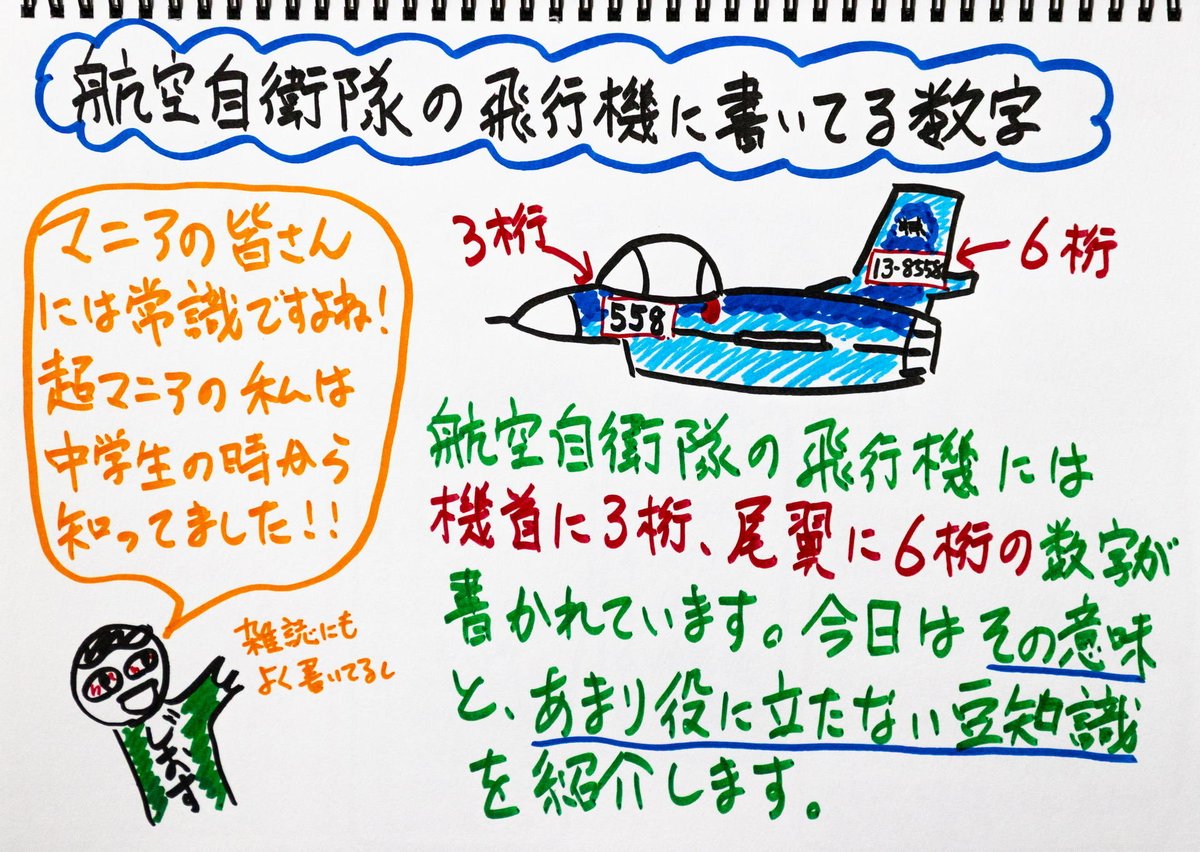 航空自衛隊の飛行機に書いてる数字
マニアの皆さん
には常識ですよね!
超マニアの私は
中学生の時から
知ってました!!
雑誌にも
よく書いてるし
3桁
6桁
13-8558
558
航空自衛隊の飛行機には
機首に3桁、尾翼に6桁の数字が
書かれています。今日はその意味
と、あまり役に立たない豆知識
を紹介します。